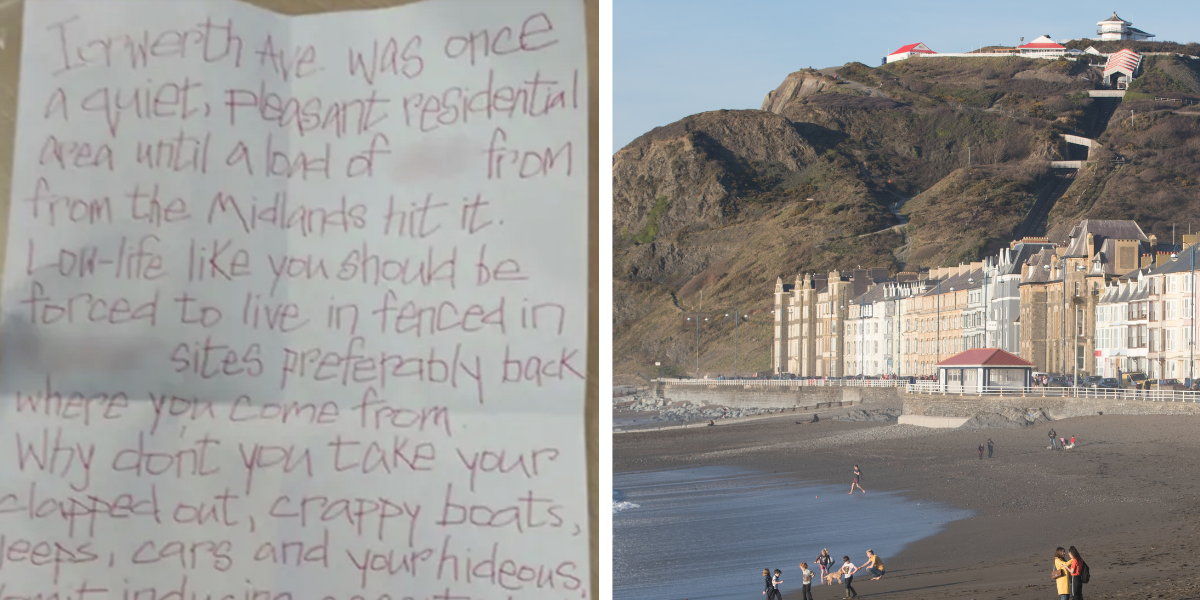 Iorwerth Ave was once
a quiet, pleasant residential
area until a load of from
from the Midlands hit it.
Low-life like you should be
forced to live in fenced in
sites preferably back
where you come from.
Why don't you take your
clapped out, crappy boats,
jeeps, cars and your hideous,